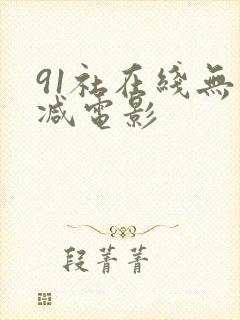 91社在綫無
减電影
段菁菁